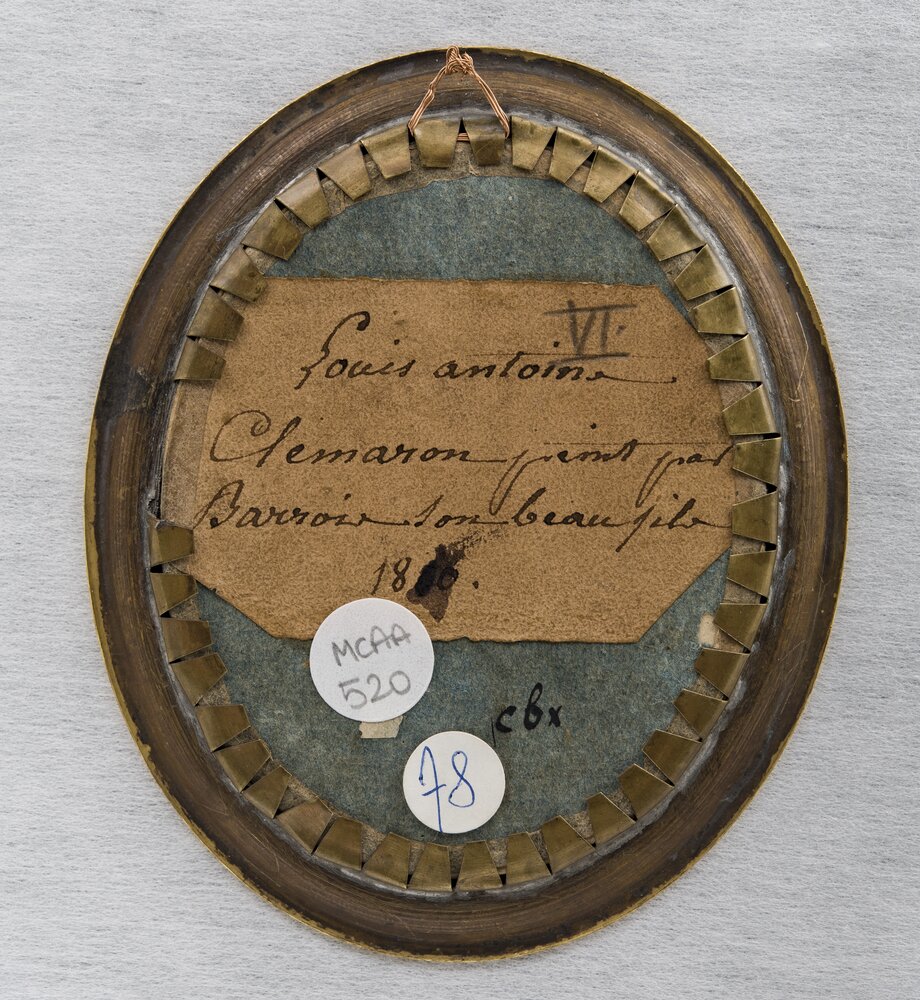 VI.
Louis antoine
Clemaron peint par
Barrois son beau fils
MCAA
520
cbx
78